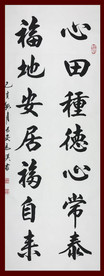 心田種德心常泰
福地安居福自来